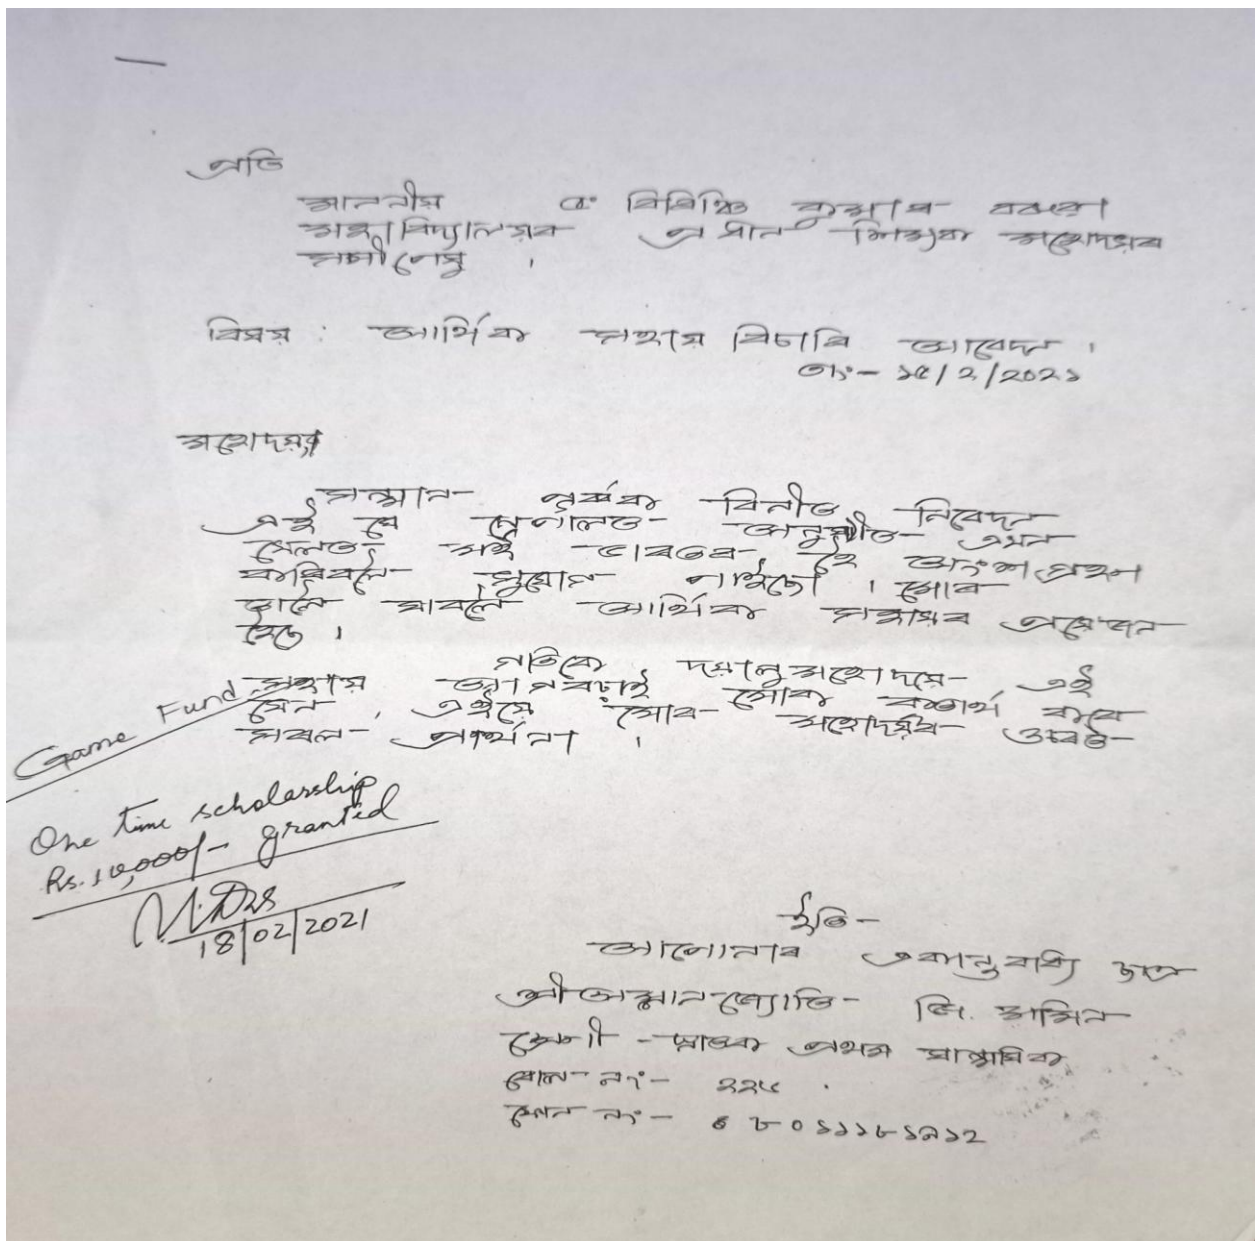 প্ৰতি
মাননীয় ড° বিৰিঞ্চি কুমাৰ বৰুৱা
মহাবিদ্যালয়ৰ প্ৰধান শিক্ষক মহোদয়ৰ
সমীপেষু ।
বিষয় : আৰ্থিক সহায় বিচাৰি আবেদন ।
তাং:- ১৫/২/২০২১
মহোদয়,
সন্মান পূৰ্বক বিনীত নিবেদন
এই যে নেপালত অনুষ্ঠীত এখন
খেলত মই ভাৰতৰ হৈ অংশ গ্ৰহণ
কৰিবলৈ সুযোগ পাইছোঁ । মোৰ
তালৈ যাবলৈ আৰ্থিক সহায়ৰ প্ৰয়োজন
হৈছে ।
গতিকে দয়ালু মহোদয়ে এই
সহায় আগবঢ়াই মোক কৃতাৰ্থ কৰে
যেন , এইয়ে মোৰ মহোদয়ৰ ওচৰত
সৰল প্ৰাৰ্থনা ।
Game Fund
One time scholarship
Rs. 10,000/- granted
18/02/2021
ইতি-
আপোনাৰ একান্ত বাধ্য ছাত্ৰ
শ্ৰী অম্লানজ্যোতি
শ্ৰেণী - স্নাতক প্ৰথম ষাণ্মাষিক
ৰোল নং- ২২৫
ফোন নং-